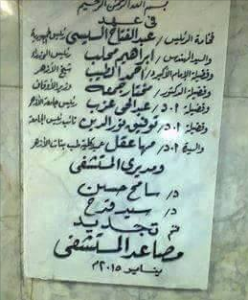 بسم الله الرحمن الرحيم
فى عهد
فخامة الرئيس / عبد الفتاح السيسى رئيس الجمهورية
والسيد المهندس / إبراهيم محلب رئيس الوزراء
وفضيلة الإمام الأكبر / أحمد الطيب شيخ الأزهر
وفضيلة الدكتور / مختار جمعة وزير الأوقاف
وفضيلة ا.د / عبد الحى عزب رئيس جامعة الأزهر
وفضيلة ا.د / توفيق نور الدين نائب رئيس الجامعة
والسيدة ا.د / مها عقل عميدة طب بنات الأزهر
ومديرى المستشفى
د / سامح حسين
د / سيد فرج
تم تجديد
مصاعد المستشفى
يناير ٢٠١٥م